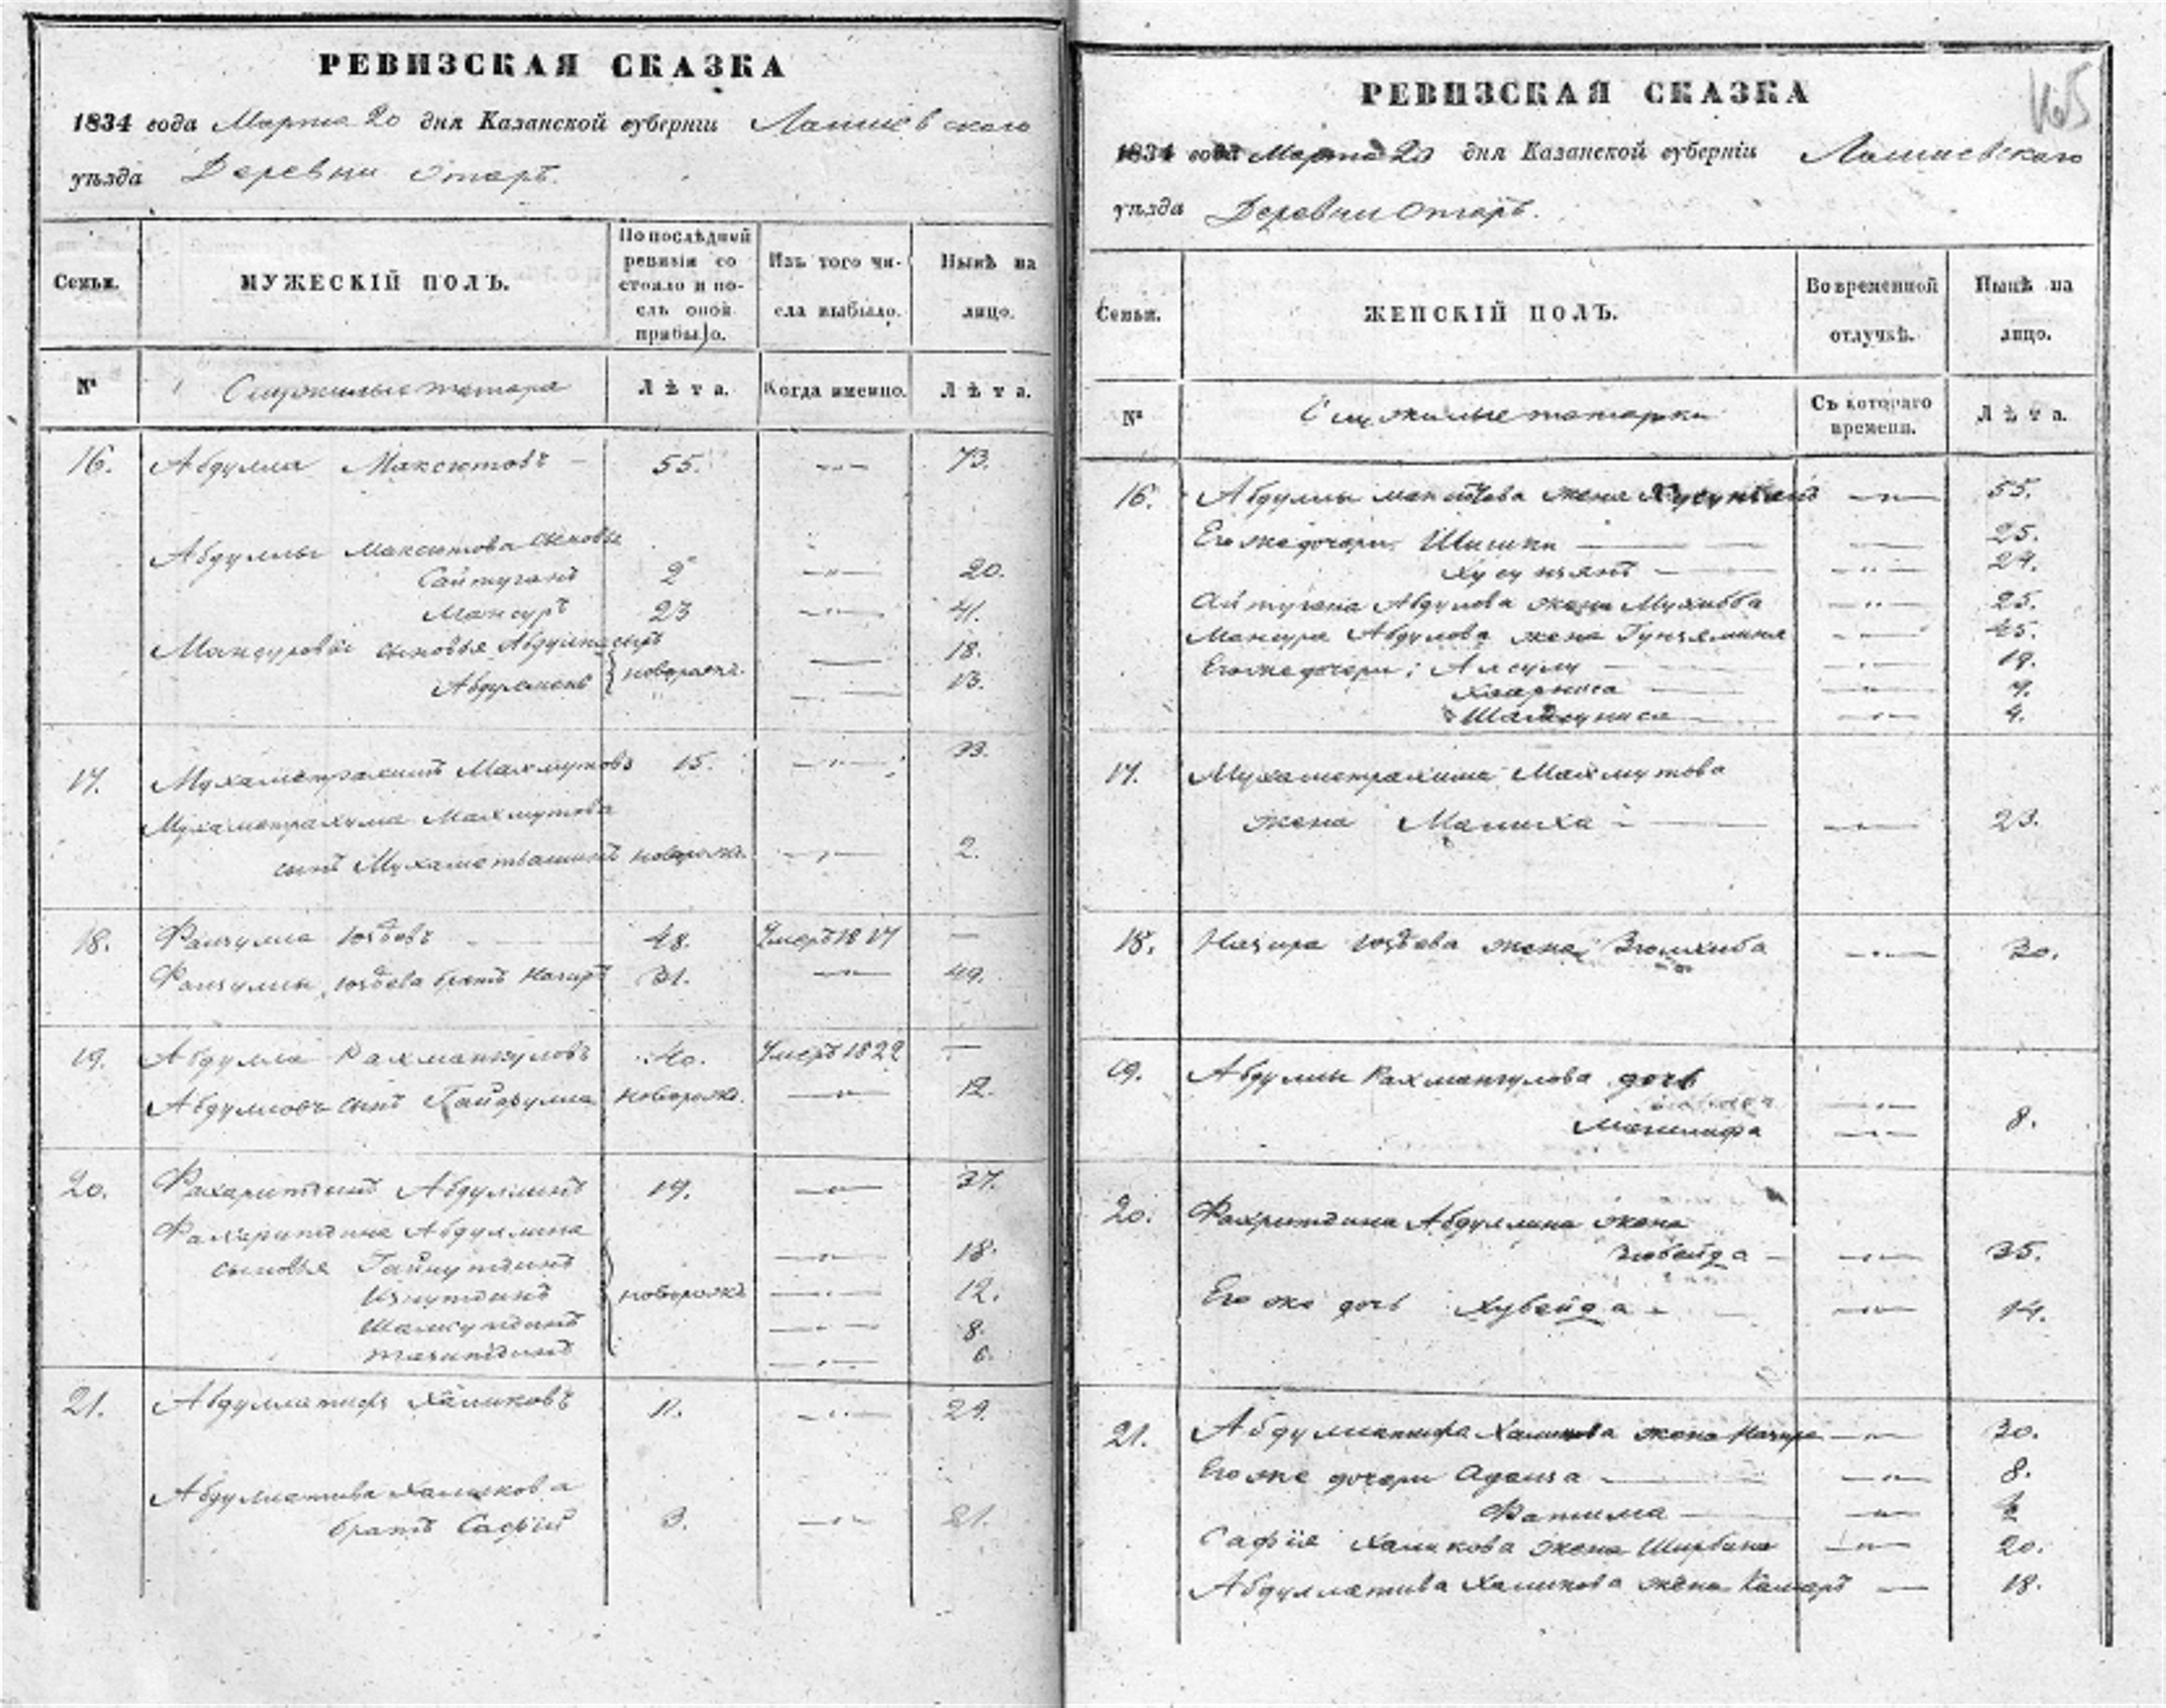 РЕВИЗСКАЯ СКАЗКА
1834 года Марта 20 дня Казанской губернiи Лаишевского
уѣзда Деревни Отаръ.
Семьи.
МУЖЕСКIЙ ПОЛЪ.
По послѣдней
ревизiи со
стояло и по-
слѣ оной
прибыло.
Изъ того чи-
сла выбыло.
Нынѣ на
лицо.
№
Служилые татара
Лѣта.
Когда именно.
Лѣта.
16. Абдулла Максютовъ 55. —"— 73.
Абдуллы Максютова сыновья
Сайтуганъ 2 —"— 20.
Мансуръ 23 —"— 41.
Мансуровы сыновья Абдулнасыръ 18.
новорожд.
13.
17. Мухаметрахимъ Махмутовъ 15. —"— 33.
Мухаметрахима Махмутова
сынъ новорожд. —"— 2.
18. 48. Умеръ 1817 —
братъ Назиръ 31. —"— 49.
19. Абдулла Рахманкуловъ 40. Умеръ 1822 —
Абдулловъ сынъ новорожд. —"— 12.
20. Фахаритдинъ Абдуллинъ 19. —"— 37.
Фахаритдина Абдуллина
сыновья Гайнутдинъ —"— 18.
новорожд. —"— 12.
—"— 8.
—"— 6.
21. Абдуллатифъ Халиковъ 11. —"— 29.
Абдуллатива Халикова
братъ Сафiй 3. —"— 21.
РЕВИЗСКАЯ СКАЗКА
1834 года Марта 20 дня Казанской губернiи Лаишевского
уѣзда Деревни Отаръ.
Семьи.
ЖЕНСКIЙ ПОЛЪ.
Во временной
отлучкѣ.
Нынѣ на
лицо.
№
Служилые татарки
Съ котораго
времени.
Лѣта.
16. Абдуллы жена —"— 55.
Его же дочери 25.
Хусузянъ —"—
Абдулова жена —"— 25.
Мансура Абдулова жена —"— 45.
Его же дочери: —"— 19.
—"—
—"— 4.
17. Мухаметрахима Махмутова
жена Малиха —"— 23.
18. Назира жена —"— 30.
19. Абдуллы Рахманкулова дочь
—"— 8.
20. Фахритдина Абдуллина жена
Зюбейда —"— 35.
Его же дочь Хубейда —"— 14.
21. Абдуллатифа Халикова жена Назира —"— 30.
Его же дочери —"— 8.
Фатима —"—
Сафiя Халикова жена Ширбана —"— 20.
Абдуллатива Халикова жена Камаръ — 18.